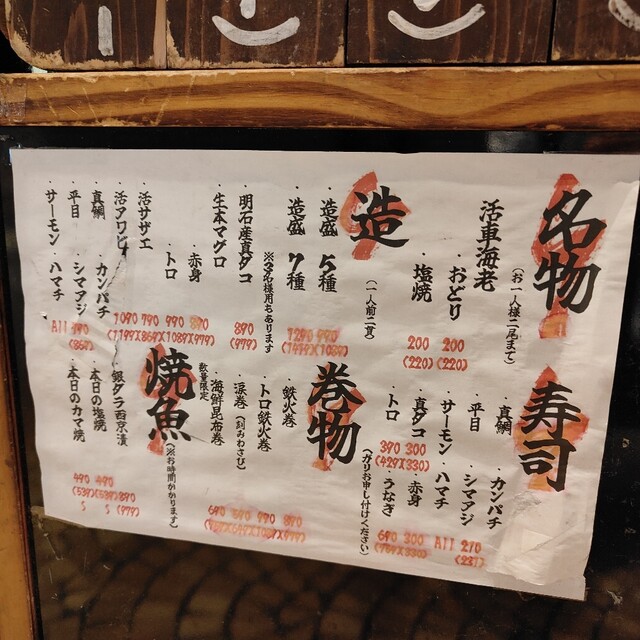 名物
活車海老
(お一人様二尾まで)
・おどり
200
(220)
・塩焼
200
(220)
造
(一人前二貫)
・造盛 5種
990
(1089)
・造盛 7種
1290
※3名様用もあります
・明石産真ダコ
890
(979)
・生本マグロ
・赤身
890
(979)
・トロ
990
(1089)
・活サザエ
790
(869)
・活アワビ
1090
(1199)
・真鯛 ・カンパチ
・平目 ・シマアジ
・サーモン・ハマチ
All 790
(869)
寿司
・真鯛 ・カンパチ
・平目 ・シマアジ
・サーモン・ハマチ
All 210
(231)
・真ダコ
300
(330)
・赤身
300
(330)
・トロ
390
(429)
・うなぎ
690
(759)
(ガリお申し付けください)
巻物
・鉄火巻
890
(979)
・トロ鉄火巻
990
(1089)
・涙巻(刻みわさび)
590
(649)
数量限定
・海鮮昆布巻
690
(759)
焼魚
(※お時間かかります)
・銀ダラ西京漬
890
(979)
・本日の塩焼
490
(539)
・本日のカマ焼
490
(539)